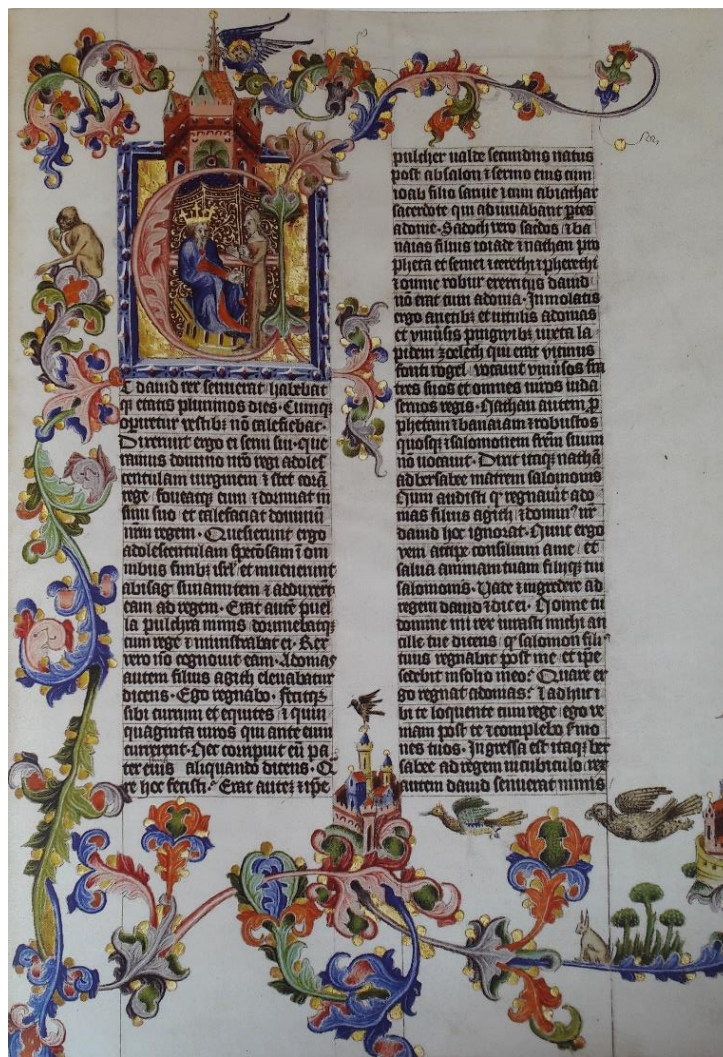 T dauid rex senuerat habebat
qz etatis plurimos dies · Cumqz
operiretur vestibz nō calefiebat ·
Dixerunt ergo ei serui sui · Que
ramus domino nrō regi adoles
centulam uirginem ⁊ stet corā
rege foueatqz eum ⁊ dormiat in
sinu suo et calefaciat dominū
nrm̄ regem · Quesierunt ergo
adolescentulam speciosam ī om
nibus finibz isrl̄ et inuenerunt
abisag sunamitem ⁊ adduxert̄
eam ad regem · Erat autē puel
la pulchra nimis dormiebatqz
cum rege ⁊ ministrabat ei · Rex
vero nō cognouit eam · Adonias
autem filius agith eleuabatur
dicens · Ego regnabo · fecitqz
sibi currum et equites ⁊ quin
quaginta uiros qui ante eum
currerent · Nec corripuit eū pa
ter eius aliquando dicens ·
re hoc fecisti · Erat autez ⁊ ip̄e
pulcher ualde secundus natus
post absalon ⁊ sermo eius cum
ioab filio saruie ⁊ cum abiathar
sacerdote qui adiuuabant ꝑtes
adonie · Sadoch vero sacdos ⁊ ba
naias filius ioiade ⁊ nathan pro
pheta et semei ⁊ cerethi ⁊ pherethi
⁊ omne robur exercitus dauid
nō erat cum adonia · Inmolatis
ergo arietibz et uitulis adonias
et vniūsis pinguibz iuxta la
pidem zoelech qui erat vicinus
fonti rogel vocauit vniūsos fra
tres suos et omnes uiros iuda
seruos regis · Nathan autem ꝓ
phetam ⁊ banaiam ⁊ robustos
quosqz ⁊ salomonem frēm suum
nō uocauit · Dixit itaqz nathā
ad bersabee matrem salomonis
Num audisti qz regnauit ado
nias filius agith ⁊ dominꝰ nr̄
dauid hoc ignorat · Nunc ergo
veni accipe consilium a me et
salua animam tuam filiiqz tui
salomonis · Vade ⁊ ingredere ad
regem dauid ⁊ dic ei · Nonne tu
domine mi rex iurasti michi an
cille tue dicens qz salomon filiꝰ
tuus regnabit post me et ip̄e
sedebit in solio meo · Quare er
go regnat adonias · ⁊ adhuc i
bi te loquente cum rege ego ve
niam post te ⁊ complebo sermo
nes tuos · Ingressa est itaqz ber
sabee ad regem in cubiculo rex
autem dauid senuerat nimis